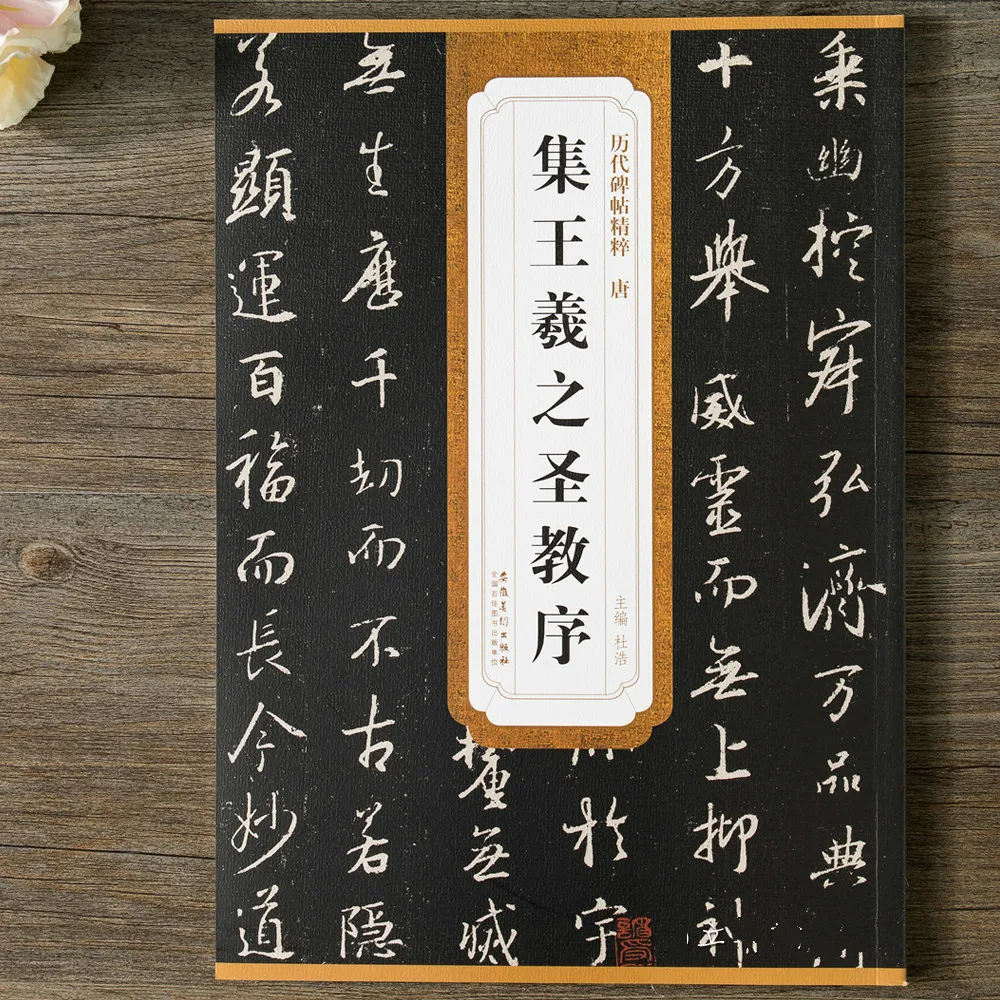 乘幽控寂弘濟万品典
十方舉威靈而無上抑
於宇
無滅
無生歷千劫而不古若隱
若顯運百福而長今妙道
历代碑帖精粹 唐
主编 杜浩
集王羲之圣教序
安徽美术出版社
全国百佳图书出版单位